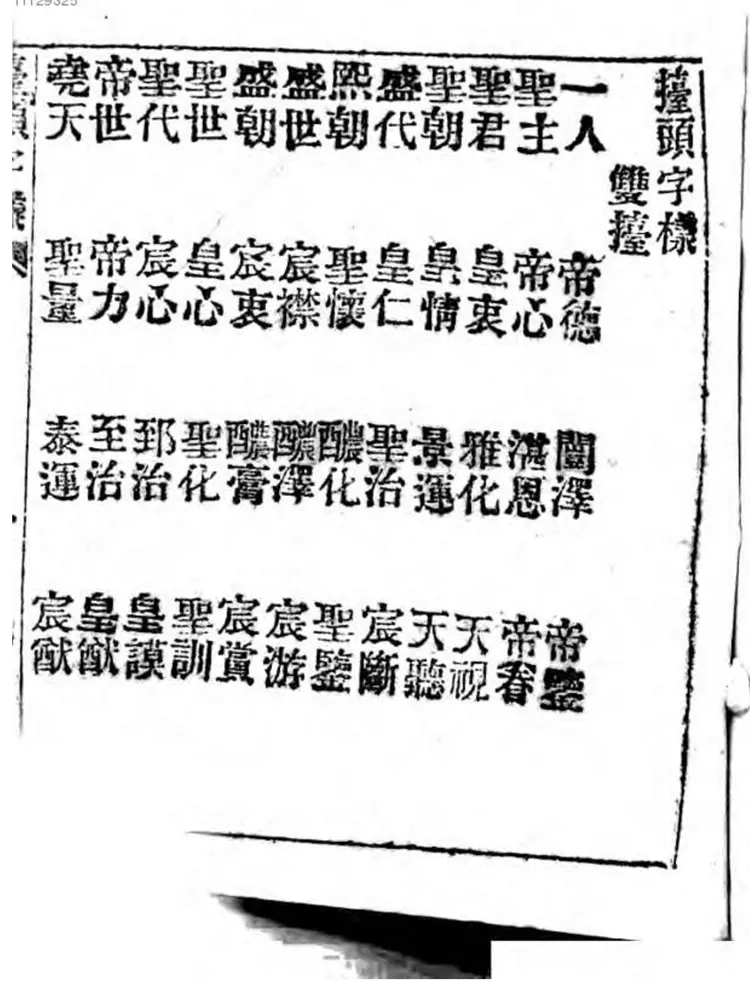 11129325
擡頭字樣
雙擡
一人 帝德 闓澤 帝鑒
聖主 帝心 湛恩 帝眷
聖君 皇衷 雅化 天視
聖朝 皇情 景運 天聽
盛代 皇仁 聖治 宸斷
熙朝 聖懷 醲化 聖鑒
盛世 宸襟 醲澤 宸游
盛朝 宸衷 醲膏 宸賞
聖世 皇心 聖化 聖訓
聖代 宸心 郅治 皇謨
帝世 帝力 至治 皇猷
堯天 聖量 泰運 宸猷